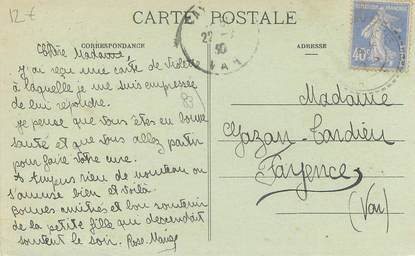 12€
CARTE POSTALE
CORRESPONDANCE
ADRESSE
Chère Madame,
J'ai reçu une carte de Violette
à laquelle je me suis empressée
de lui répondre.
Je pense que vous êtes en bonne
santé et que vous allez partir
pour faire votre cure.
A rien de nouveau on
s'amuse bien et voilà.
Bonnes amitiés et bon souvenir
de la petite fille qui descendait
souvent le soir. Rose-Marie
83
22
30
VAR
40c
Madame
Gazan-Tardieu
Fayence
(Var)